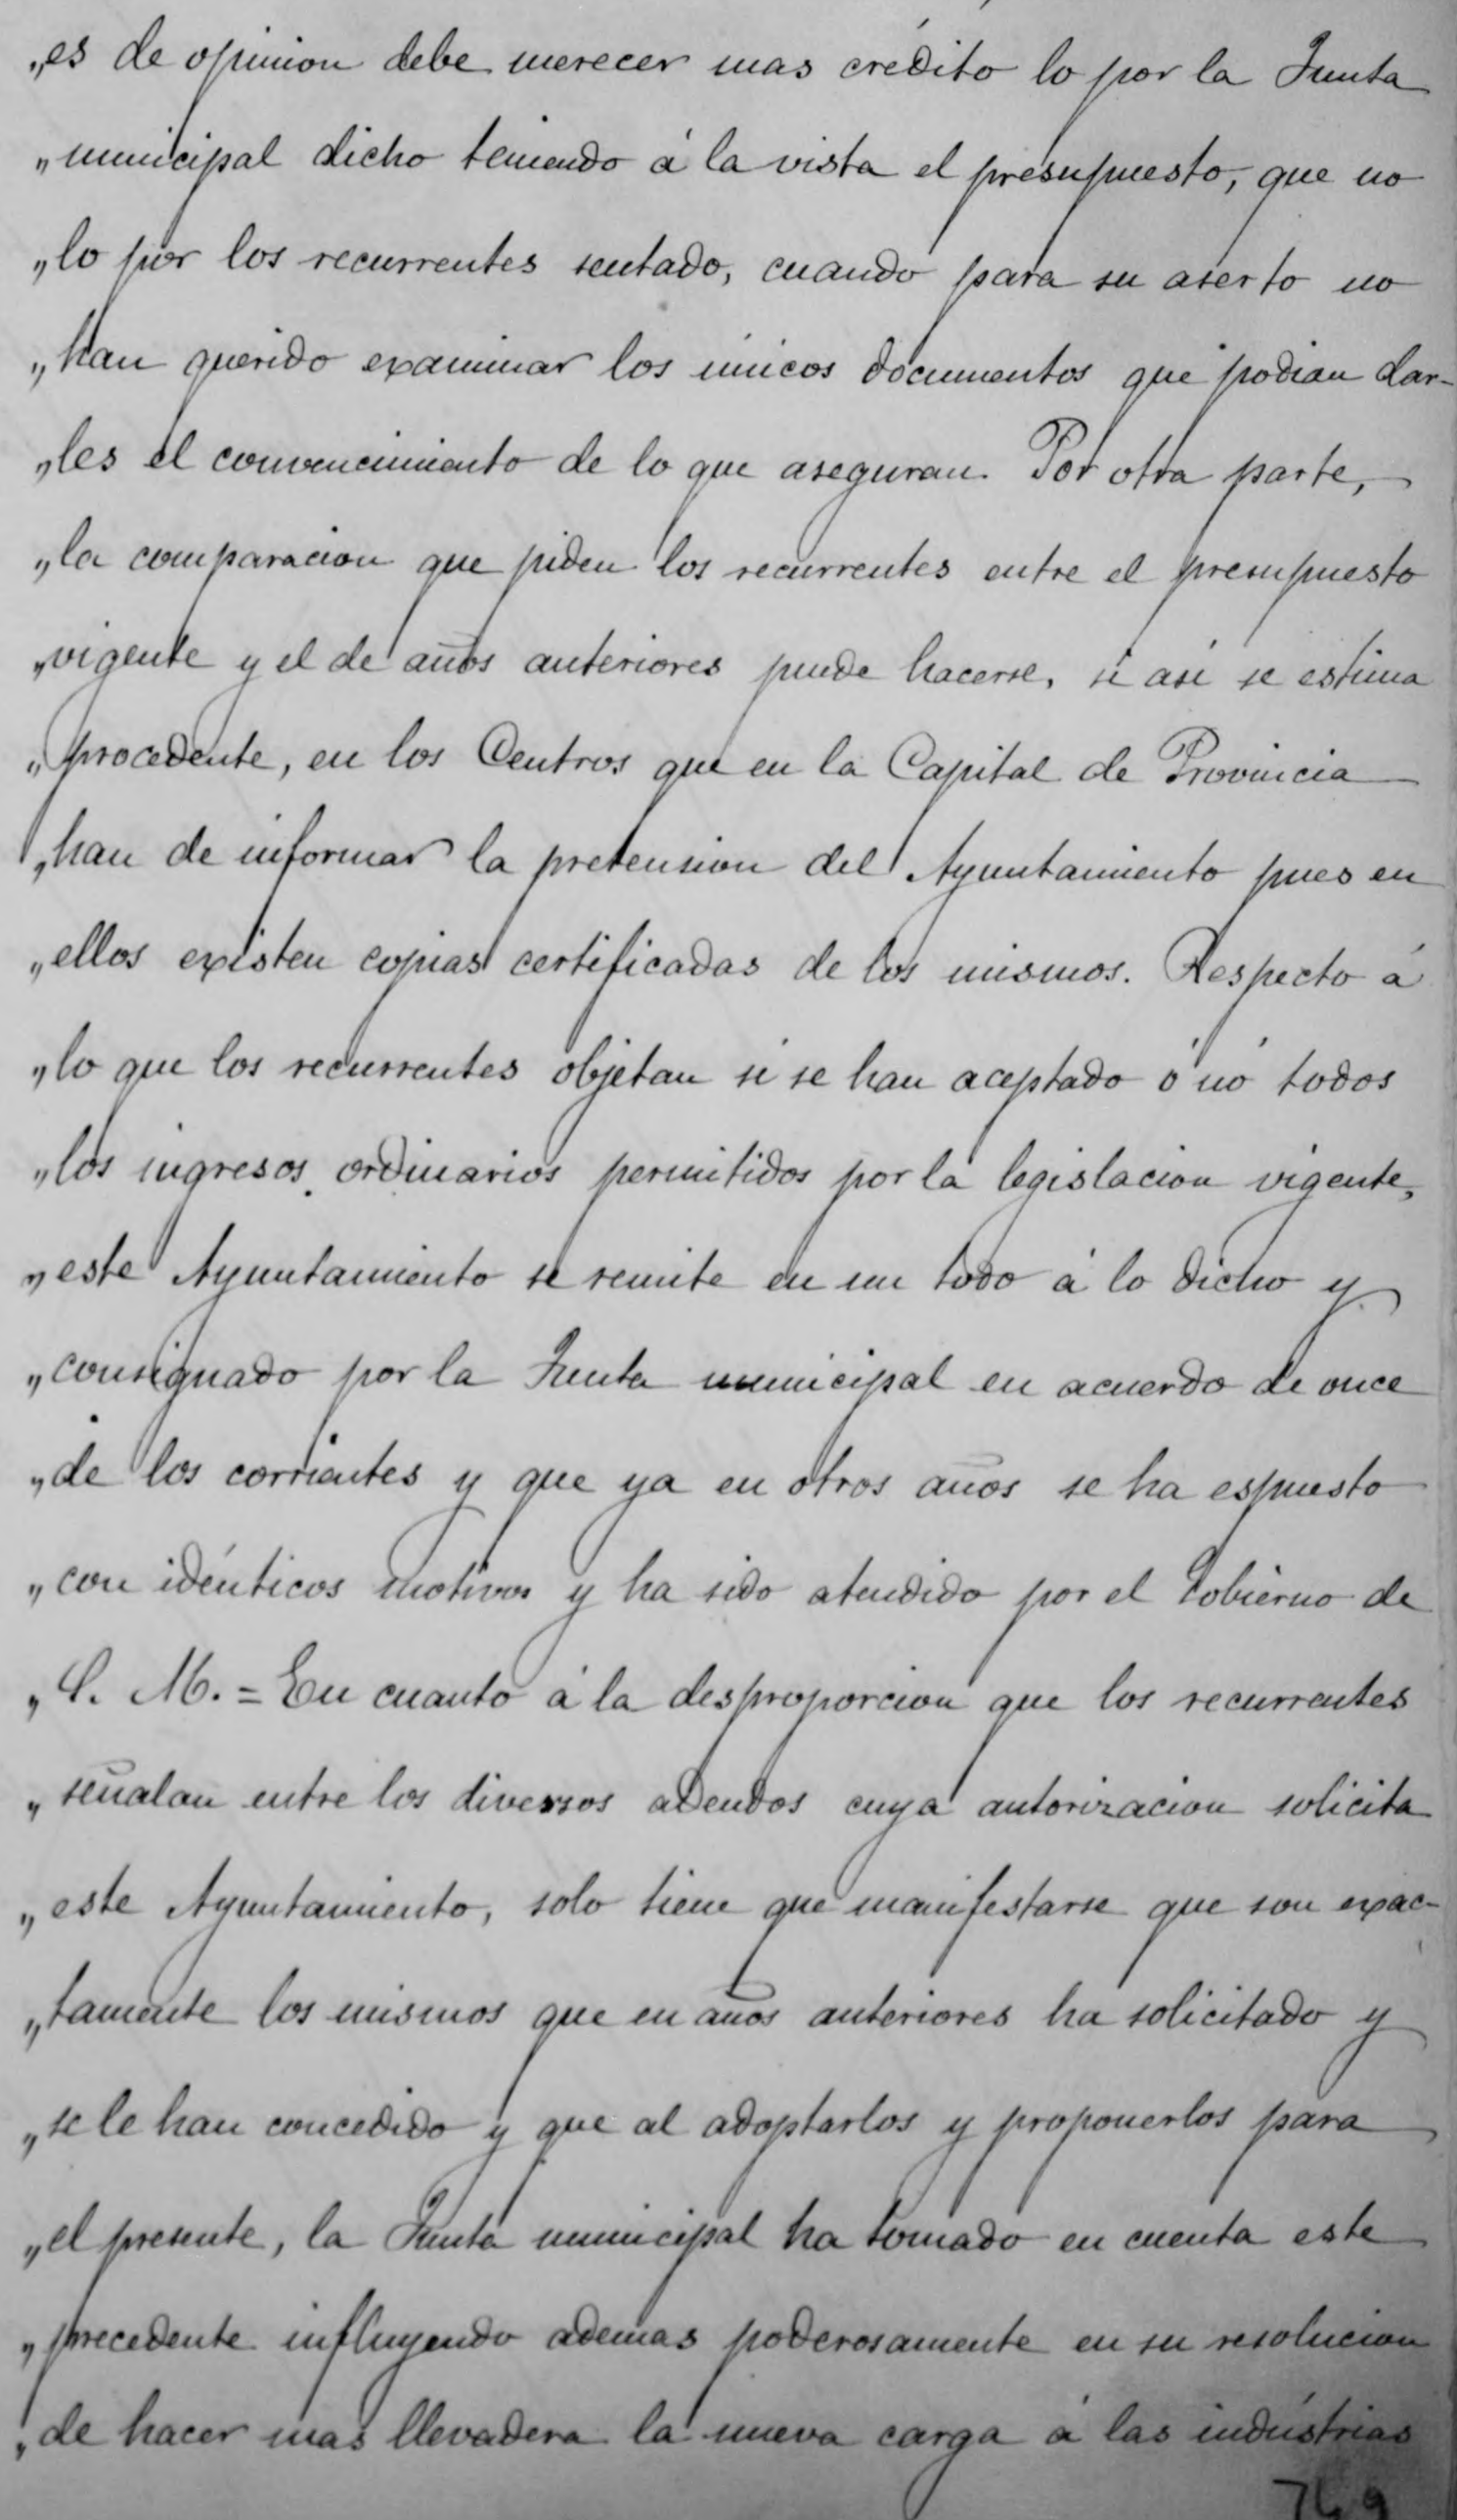 „es de opinion debe merecer mas crédito lo por la Junta
„municipal dicho teniendo á la vista el presupuesto, que no
„lo por los recurrentes sentado, cuando para su aserto no
„han querido examinar los únicos documentos que podian dar-
„les el convencimiento de lo que aseguran. Por otra parte,
„la comparacion que piden los recurrentes entre el presupuesto
„vigente y el de años anteriores puede hacerse, si asi se estima
„procedente, en los Centros que en la Capital de Provincia
„han de informar la pretension del Ayuntamiento pues en
„ellos existen copias certificadas de los mismos. Respecto á
„lo que los recurrentes objetan si se han aceptado ó nó todos
„los ingresos ordinarios permitidos por la legislacion vigente,
„este Ayuntamiento se remite en un todo á lo dicho y
„consignado por la Junta municipal en acuerdo de once
„de los corrientes y que ya en otros años se ha espuesto
„con idénticos motivos y ha sido atendido por el Gobierno de
„S. M. = En cuanto á la desproporcion que los recurrentes
„señalan entre los diversos adeudos cuya autorizacion solicita
„este Ayuntamiento, solo tiene que manifestarse que son exac-
„tamente los mismos que en años anteriores ha solicitado y
„se le han concedido y que al adoptarlos y proponerlos para
„el presente, la Junta municipal ha tomado en cuenta este
„precedente influyendo ademas poderosamente en su resolucion
„de hacer mas llevadera la nueva carga á las indústrias